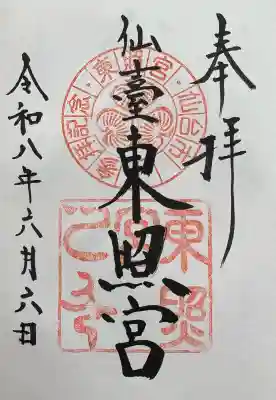 奉拝
仙臺東照宮
令和八年六月六日
東照宮